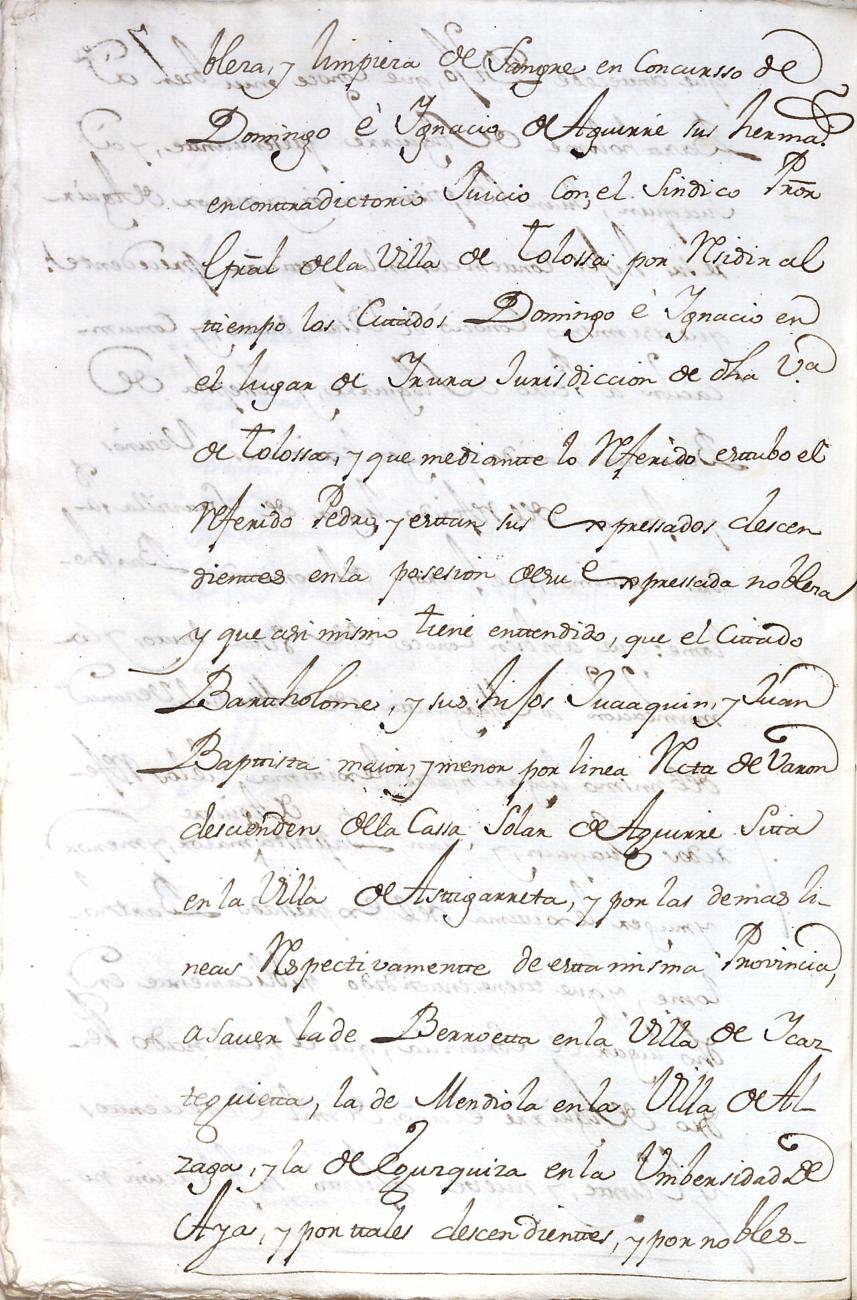 bleza, y limpieza de Sangre en Concursso de
Domingo è Ygnacio de Aguirre sus herma.s
encontradictorio Juicio con el Sindico Pror̄
Gral̄ de la Villa de Tolossa por Residir al
ttiempo los Cittados Domingo è Ygnacio en
el lugar de Yrura Jurisdiccion de dha V.a
de Tolossa, y que mediantte lo Referido esttubo el
Referido Pedro, y esttan sus expressados descen
dienttes en la posesion de su expressada nobleza
y que asi mismo tiene enttendido, que el Cittado
Bartholome, y sus hijos Juaaquin, y Juan
Bapttista maior, y menor por linea Recta de Varon
descienden de la Cassa Solar de Aguirre Sitta
en la Villa de Asttigarreta, y por las demas li-
neas Respectivamentte de estta misma Provincia,
a saver la de Berroetta en la Villa de Ycaz-
teguietta, la de Mendiola en la Villa de Al-
zaga, y la de Egurquiza en la Unibersidad de
Aya, y por ttales descendienttes, y por nobles-